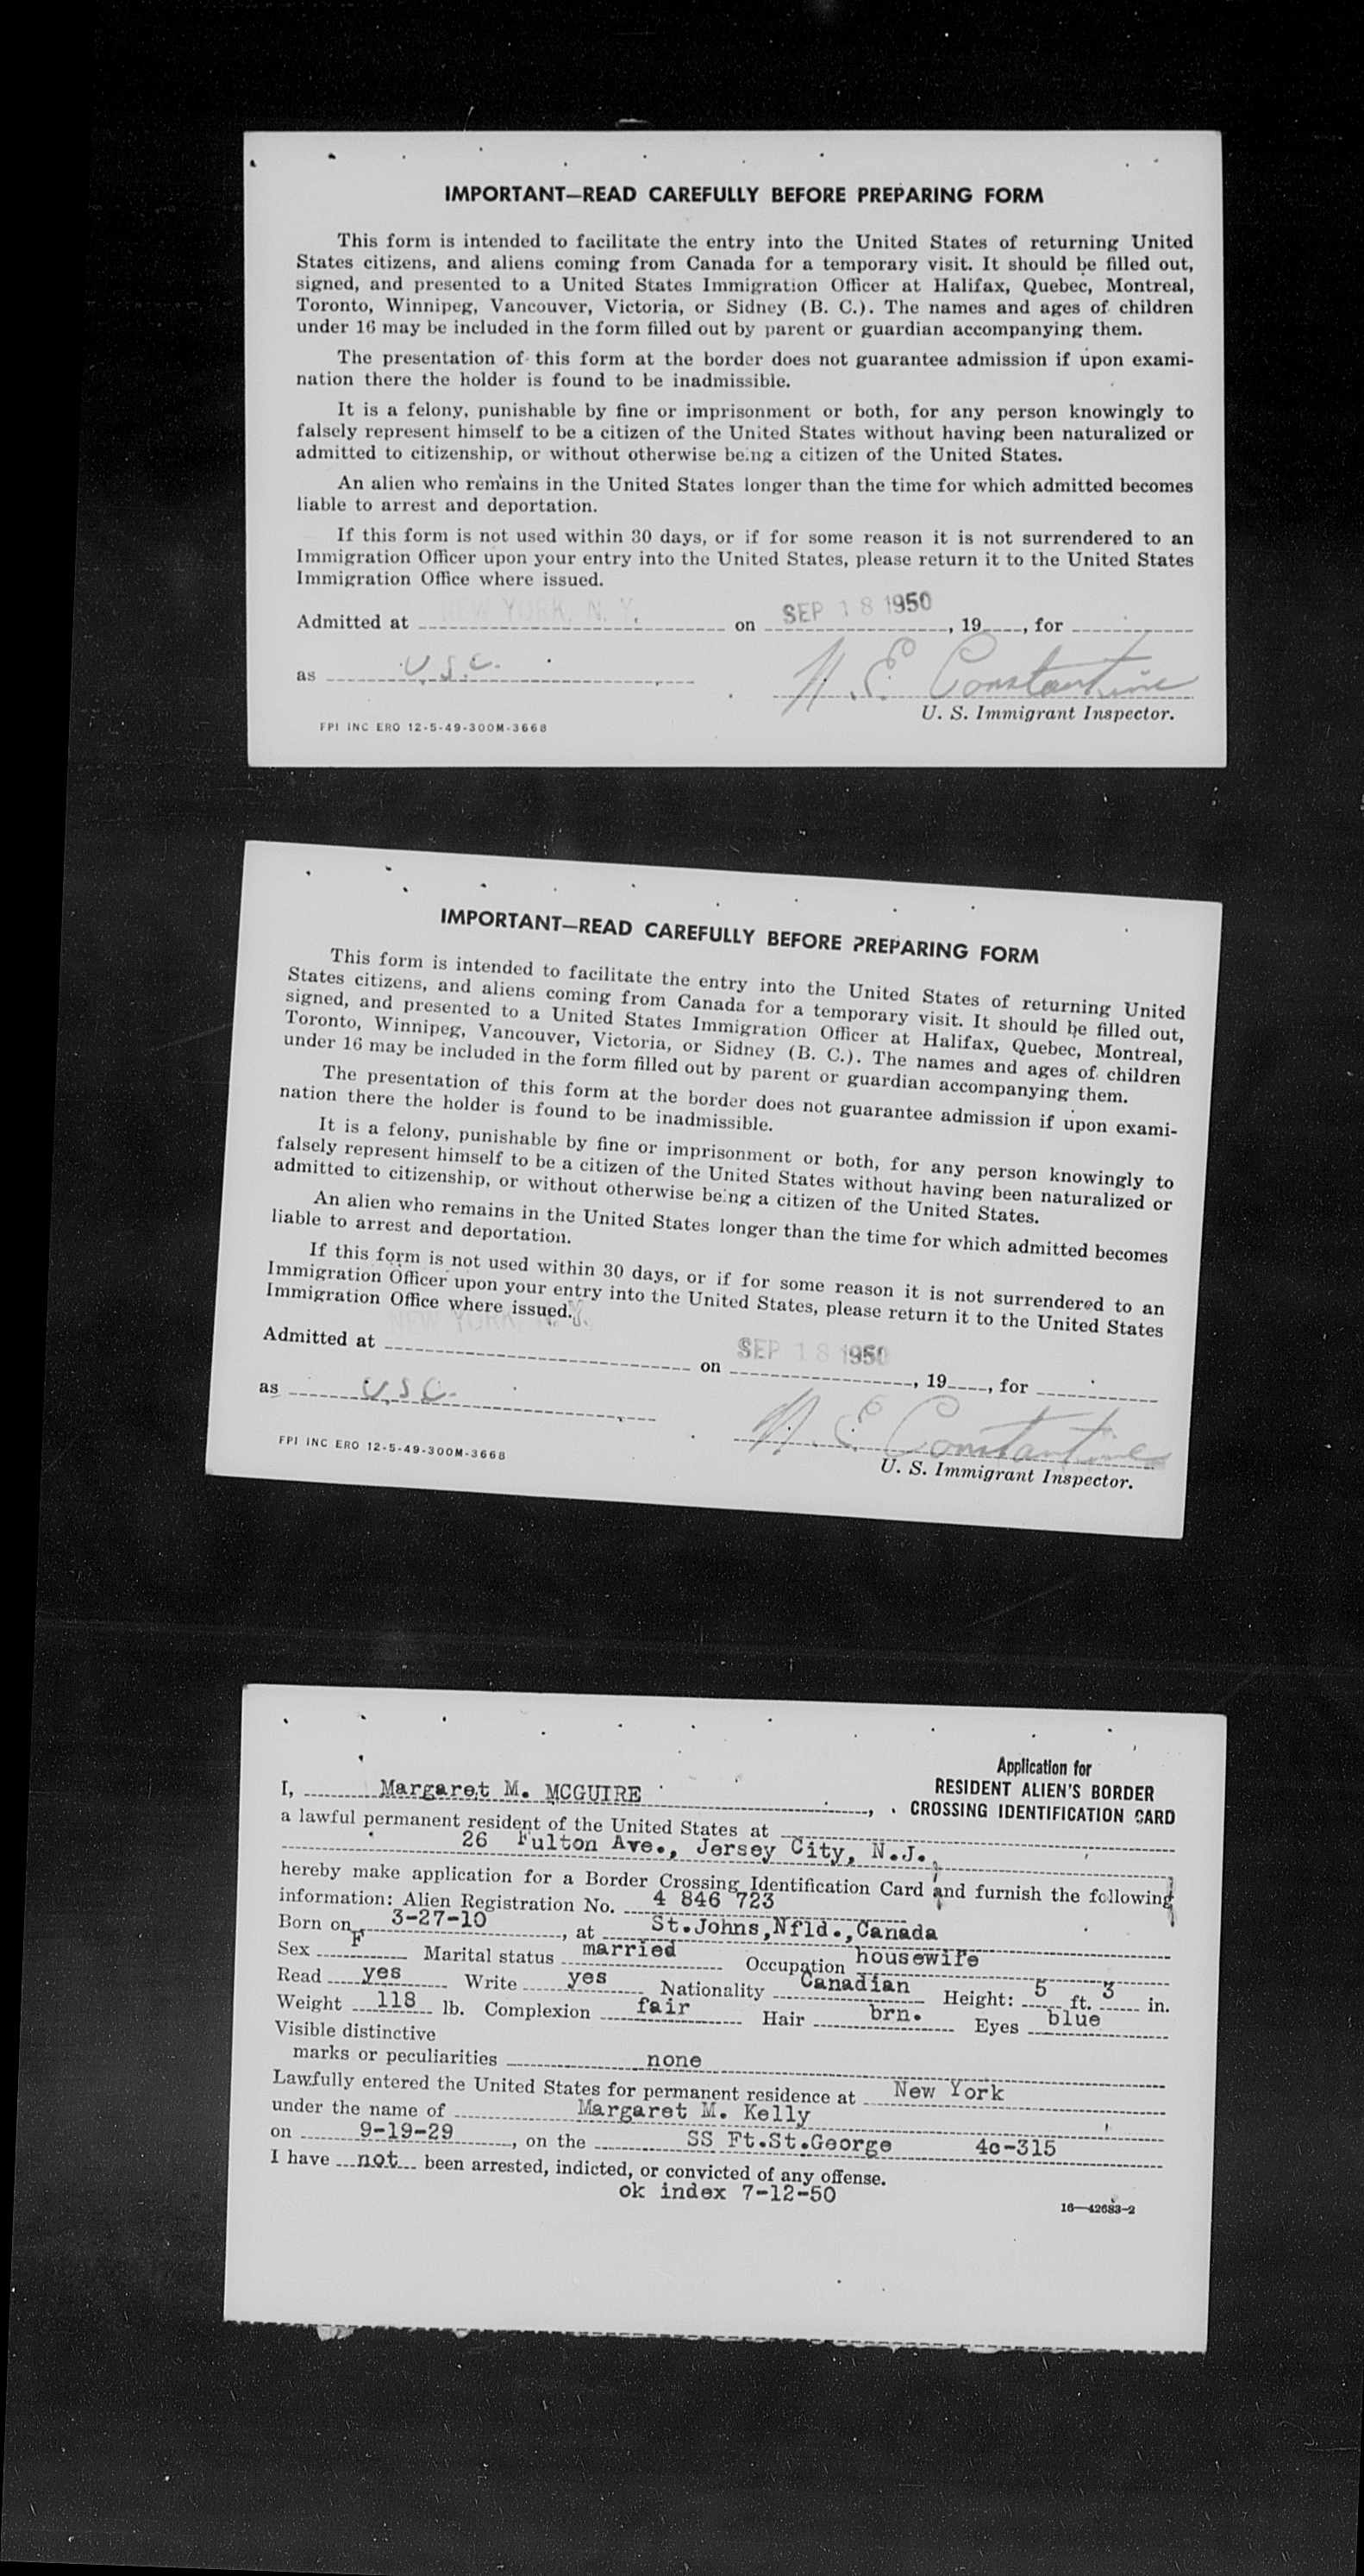 IMPORTANT—READ CAREFULLY BEFORE PREPARING FORM
This form is intended to facilitate the entry into the United States of returning United
States citizens, and aliens coming from Canada for a temporary visit. It should be filled out,
signed, and presented to a United States Immigration Officer at Halifax, Quebec, Montreal,
Toronto, Winnipeg, Vancouver, Victoria, or Sidney (B. C.). The names and ages of children
under 16 may be included in the form filled out by parent or guardian accompanying them.
The presentation of this form at the border does not guarantee admission if upon exami-
nation there the holder is found to be inadmissible.
It is a felony, punishable by fine or imprisonment or both, for any person knowingly to
falsely represent himself to be a citizen of the United States without having been naturalized or
admitted to citizenship, or without otherwise being a citizen of the United States.
An alien who remains in the United States longer than the time for which admitted becomes
liable to arrest and deportation.
If this form is not used within 30 days, or if for some reason it is not surrendered to an
Immigration Officer upon your entry into the United States, please return it to the United States
Immigration Office where issued.
Admitted at NEW YORK, N. Y. on SEP 18 1950, 19, for
as U.S.C. N. E. Constantine
U. S. Immigrant Inspector.
FPI INC ERO 12-5-49-300M-3668
IMPORTANT—READ CAREFULLY BEFORE PREPARING FORM
This form is intended to facilitate the entry into the United States of returning United
States citizens, and aliens coming from Canada for a temporary visit. It should be filled out,
signed, and presented to a United States Immigration Officer at Halifax, Quebec, Montreal,
Toronto, Winnipeg, Vancouver, Victoria, or Sidney (B. C.). The names and ages of children
under 16 may be included in the form filled out by parent or guardian accompanying them.
The presentation of this form at the border does not guarantee admission if upon exami-
nation there the holder is found to be inadmissible.
It is a felony, punishable by fine or imprisonment or both, for any person knowingly to
falsely represent himself to be a citizen of the United States without having been naturalized or
admitted to citizenship, or without otherwise being a citizen of the United States.
An alien who remains in the United States longer than the time for which admitted becomes
liable to arrest and deportation.
If this form is not used within 30 days, or if for some reason it is not surrendered to an
Immigration Officer upon your entry into the United States, please return it to the United States
Immigration Office where issued.
Admitted at NEW YORK, N. Y. on SEP 18 1950, 19, for
as U.S.C. N. E. Constantine
U. S. Immigrant Inspector.
FPI INC ERO 12-5-49-300M-3668
Application for
RESIDENT ALIEN'S BORDER
CROSSING IDENTIFICATION CARD
I, Margaret M. MCGUIRE,
a lawful permanent resident of the United States at
26 Fulton Ave., Jersey City, N.J.,
hereby make application for a Border Crossing Identification Card and furnish the following
information: Alien Registration No. 4 846 723
Born on 3-27-10, at St.Johns,Nfld.,Canada
Sex F Marital status married Occupation housewife
Read yes Write yes Nationality Canadian Height: 5 ft. 3 in.
Weight 118 lb. Complexion fair Hair brn. Eyes blue
Visible distinctive
marks or peculiarities none
Lawfully entered the United States for permanent residence at New York
under the name of Margaret M. Kelly
on 9-19-29, on the SS Ft.St.George 4c-315
I have not been arrested, indicted, or convicted of any offense.
ok index 7-12-50
16—42683-2